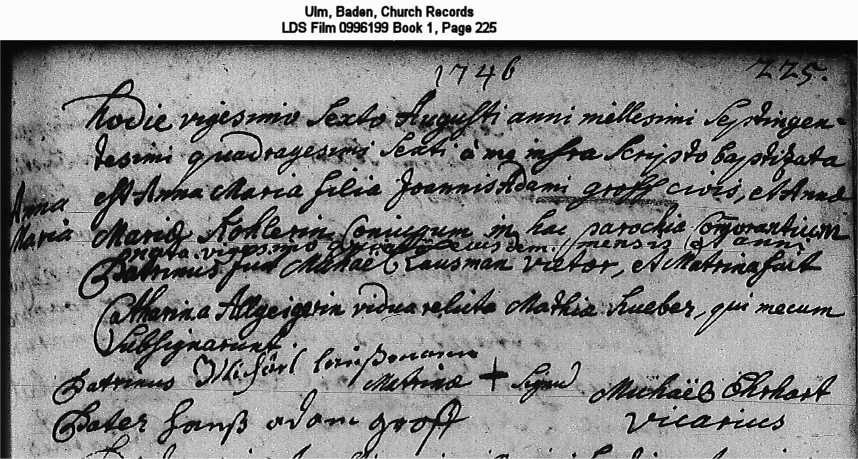 Ulm, Baden, Church Records
LDS Film 0996199 Book 1, Page 225
1746 225.
Hodie vigesimo sexto Augusti anni millesimi septingen=
tesimi quadragesimi sexti à me infra scripto baptizata
est Anna Maria filia Joannis Adami groff civis, et Annæ
Anna
Maria
Mariæ Kohlerin Coniugum in hac parochia Comorantium
nata vigesimo eiusdem mensis et anni
Patrinus fuit Michaël Lausman viator, et Matrina fuit
Catharina Allgeigerin vidua relicta Mathiæ Hueber, qui mecum
subsignarunt.
Patrinus Matrinæ + signu Michaël Ehrhart
Pater Hanß adam groff vicarius